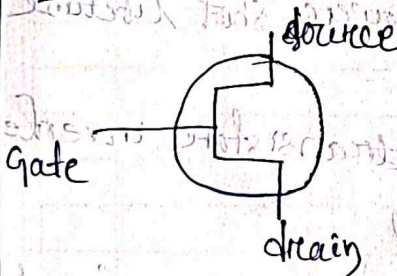 source
Gate
drain